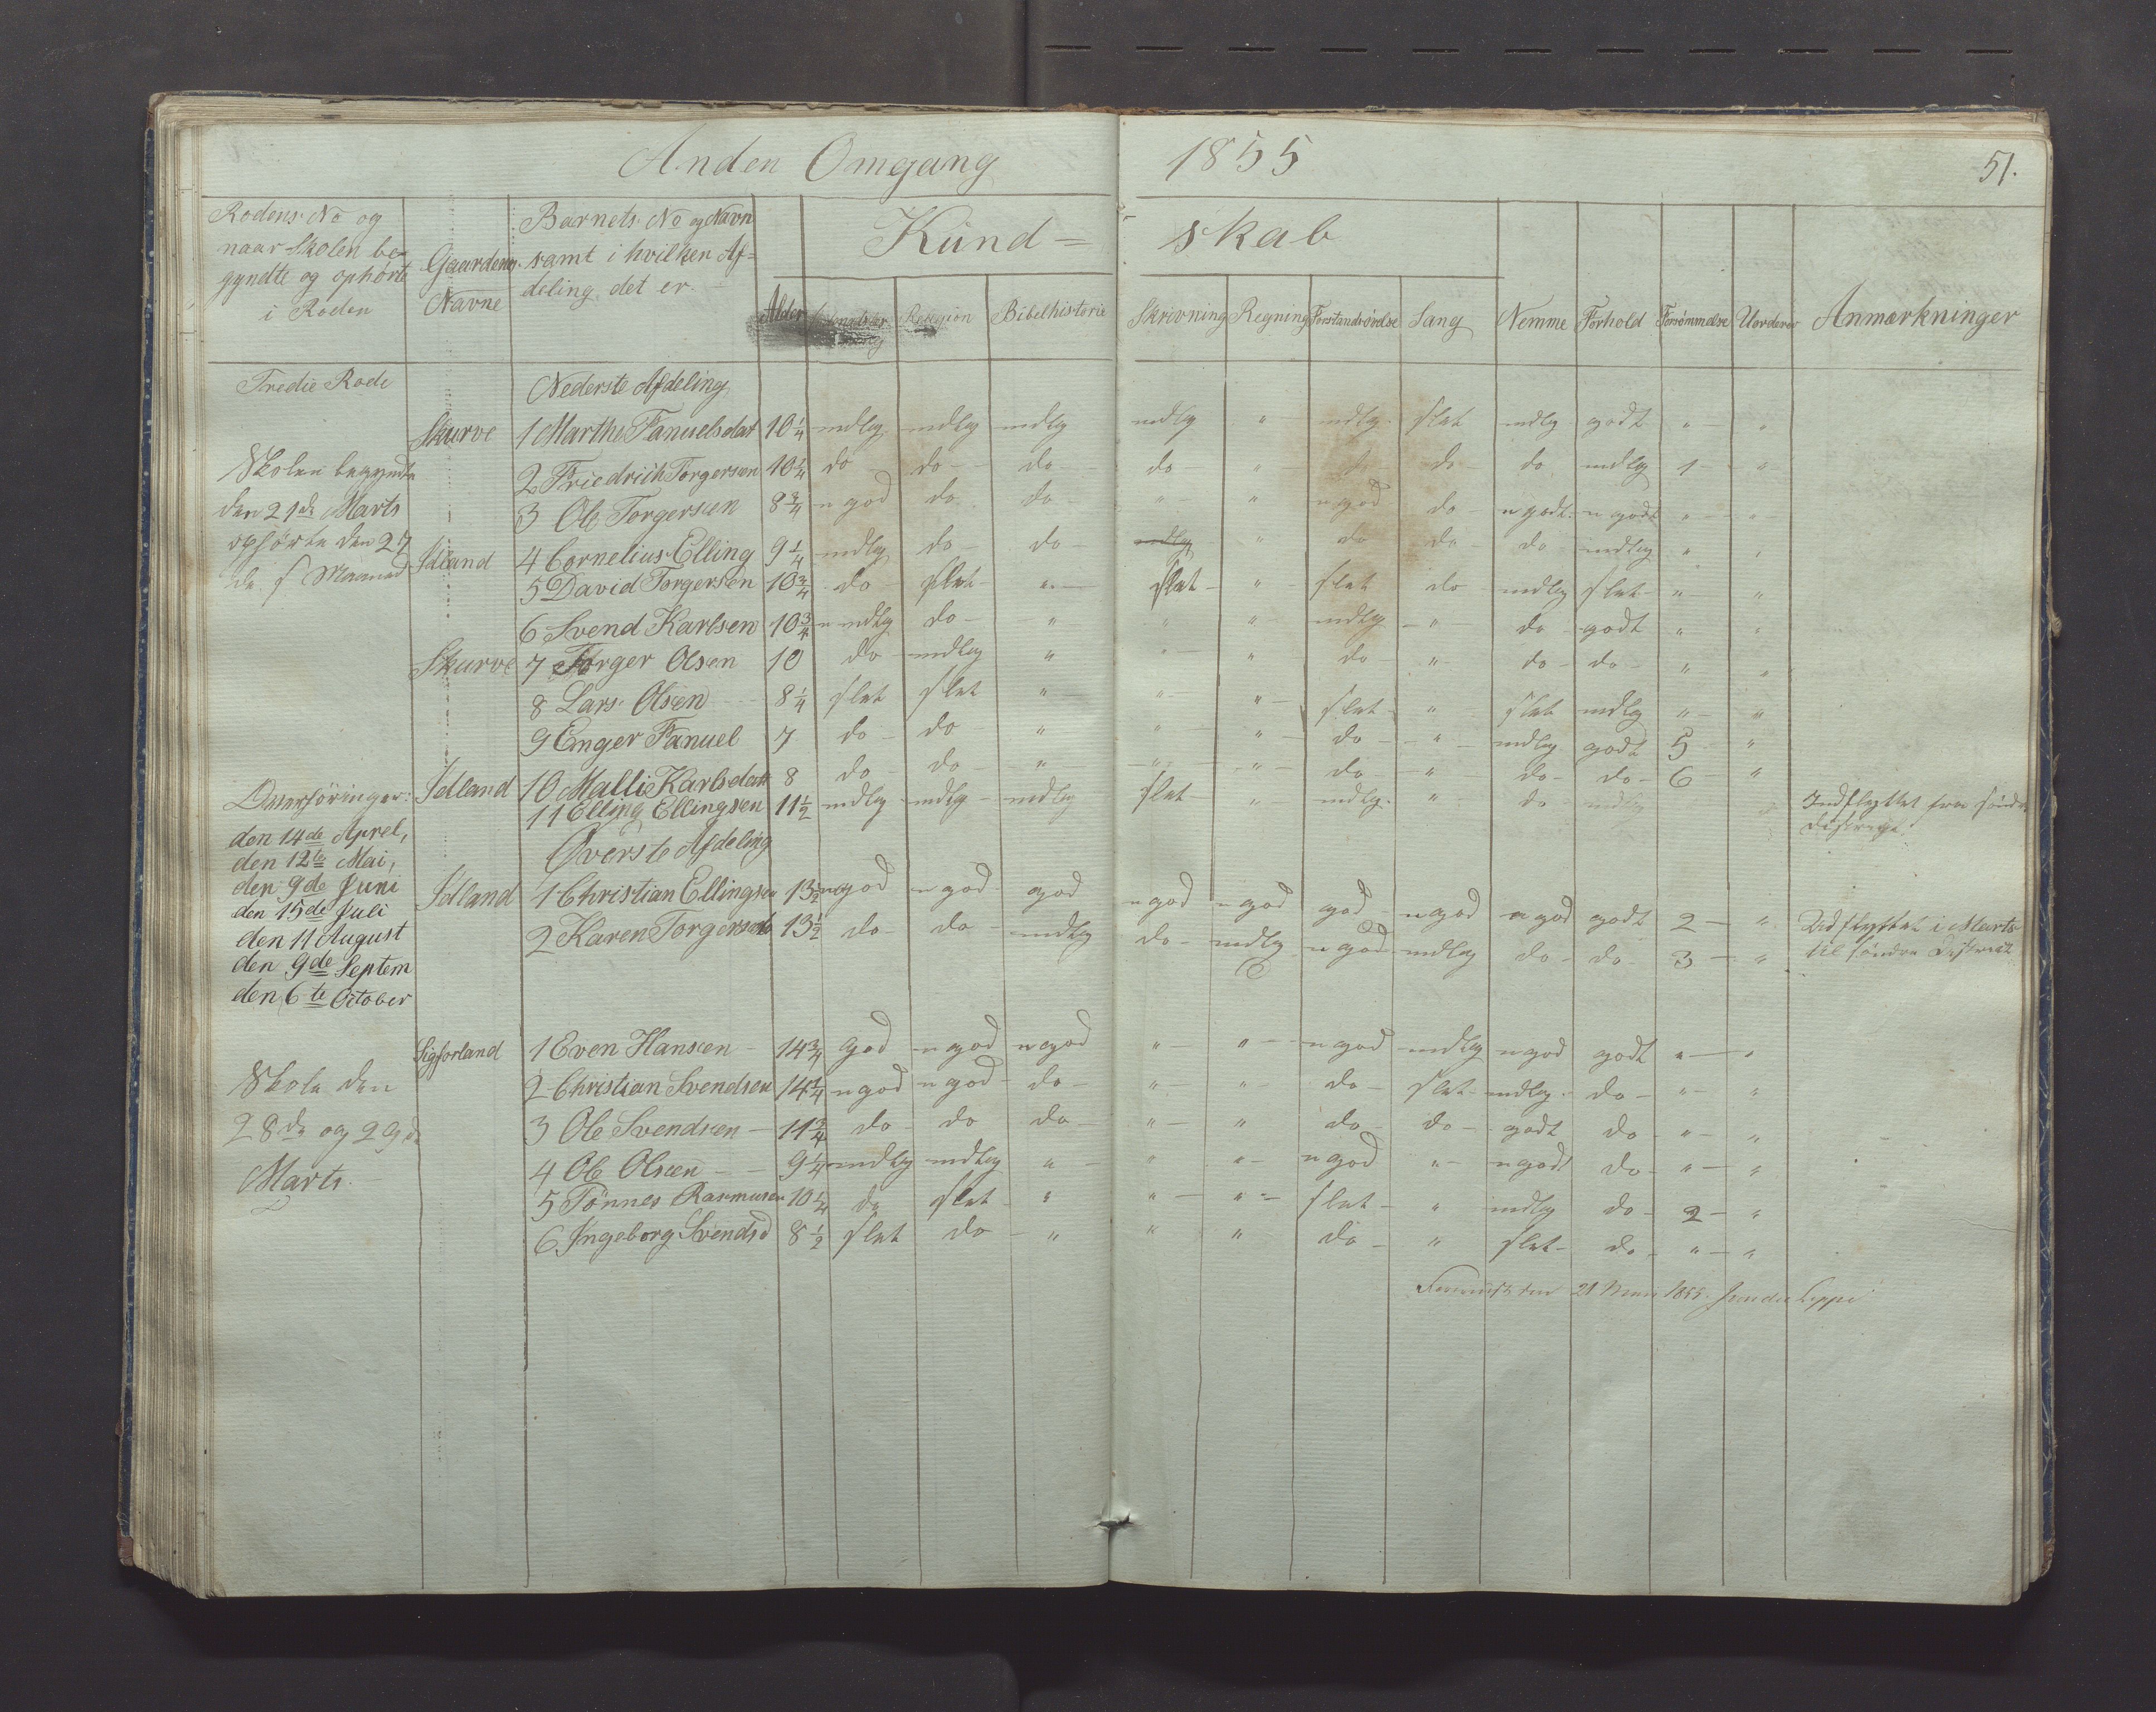 Anden Omgang 1855
51.
Rodens No og
naar Skolen be-
gyndte og ophørte
i Roden
Gaardenes
Navne
Barnets No og Navn
samt i hvilken Af-
deling det er.
Alder
Kund= skab
Religion Bibelhistorie Skrivning Regning Forstandsøvelse Sang Nemme Forhold Forsømmelse Uordener Anmærkninger
Tredie Rode
Nederste Afdeling
Skurve 1 Marthe Fanuelsdat 10 1/4 mdlg mdlg mdlg mdlg " mdlg. slet mdlg godt " "
Skolen begyndte
den 21de Marts
ophørte den 27
de s Maaned
2 Friedrich Torgersen 10 1/4 do do do do " do do mdlg 1 "
3 Ole Torgersen 8 3/4 ngod do do " " ngod do ngodt. ngodt " "
Idland 4 Cornelius Elling 9 1/4 mdlg do do mdlg " do do do mdlg " "
5 David Torgersen 10 3/4 do slet " slet " slet do mdlg slet " "
6 Svend Karlsen 10 3/4 nmdlg do " " " mdlg " do godt " "
Skurve 7 Torger Olsen 10 do mdlg " " " do " do do " "
8 Lars Olsen 8 1/4 slet slet " " " slet " slet mdlg " "
9 Enger Fanuel 7 do do " " " do " mdlg godt 5 "
Idland 10 Mallie Karlsdatt 8 do do " " " do " do do 6 "
11 Elling Ellingsen 11 1/2 mdlg mdlg mdlg slet " mdlg. " do mdlg
Indflyttet fra søndre
Distrigt.
Overhøringer:
den 14de Aprel,
den 12te Mai,
den 9de Juni
den 15de Juli
den 11 August
den 9de Septem
den 6te October
Øverste Afdeling
Idland 1 Christian Ellingsen 13 1/2 ngod ngod god ngod ngod god ngod ngod godt 2 "
2 Karen Torgersd 13 1/2 do do mdlg do mdlg ngod mdlg do do 3 "
Udflyttet i Marts
til søndre Distrikt
Sigforland 1 Even Hansen 14 3/4 god ngod ngod " " ngod mdlg ngod godt " "
Skole den
28de og 29de
Marts.
2 Christian Svendsen 14 1/4 ngod ngod do " " do slet mdlg. do " "
3 Ole Svendsen 11 3/4 do do do " " do do godt do " "
4 Ole Olsen 9 1/4 mdlg mdlg " " " ngod " ngodt do " "
5 Tønnes Rasmusen 10 1/4 do slet " " " slet " mdlg do 2 "
6 Ingeborg Svendsd 8 1/2 slet do " " " do " slet do " "
21 1855